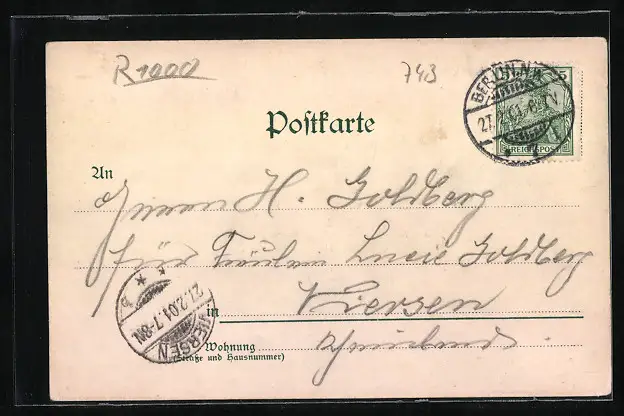 R 1000
743
BERLIN. N.W.
27.2.01. 6-7 V
5
REICHSPOST
Postkarte
An
Herrn H. Goldberg
für Fräulein Lucie Goldberg
in Viersen
VIERSEN
27.2.01. 7-8N.
Wohnung
(Straße und Hausnummer)